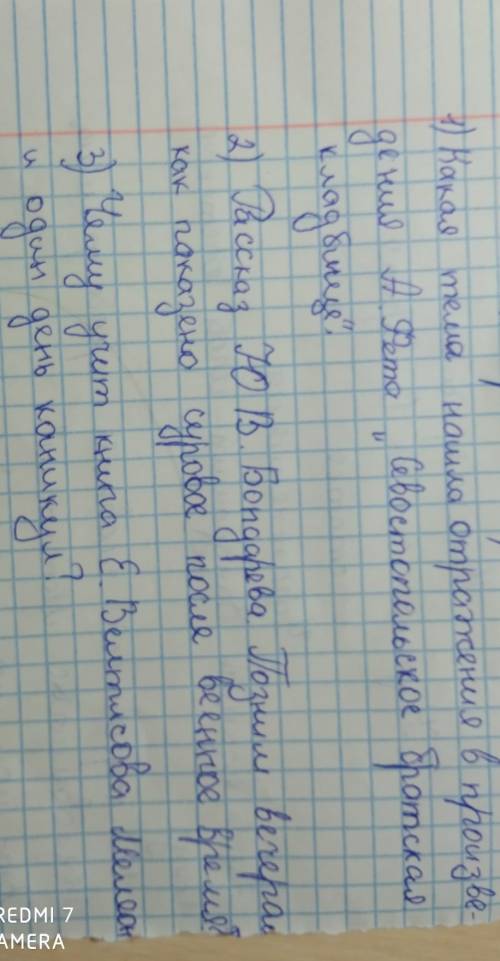 1) Какая тема нашла отражения в произве-
дения А. Фета „Севостопольское братская
кладбище",
2) Рассказ Ю В. Бондарева. Поздним вечерам
как паказено суровое после веенное время?
3) Чему учит книга Е. Велтисова Милеон
и один день каникул?
REDMI 7
CAMERA